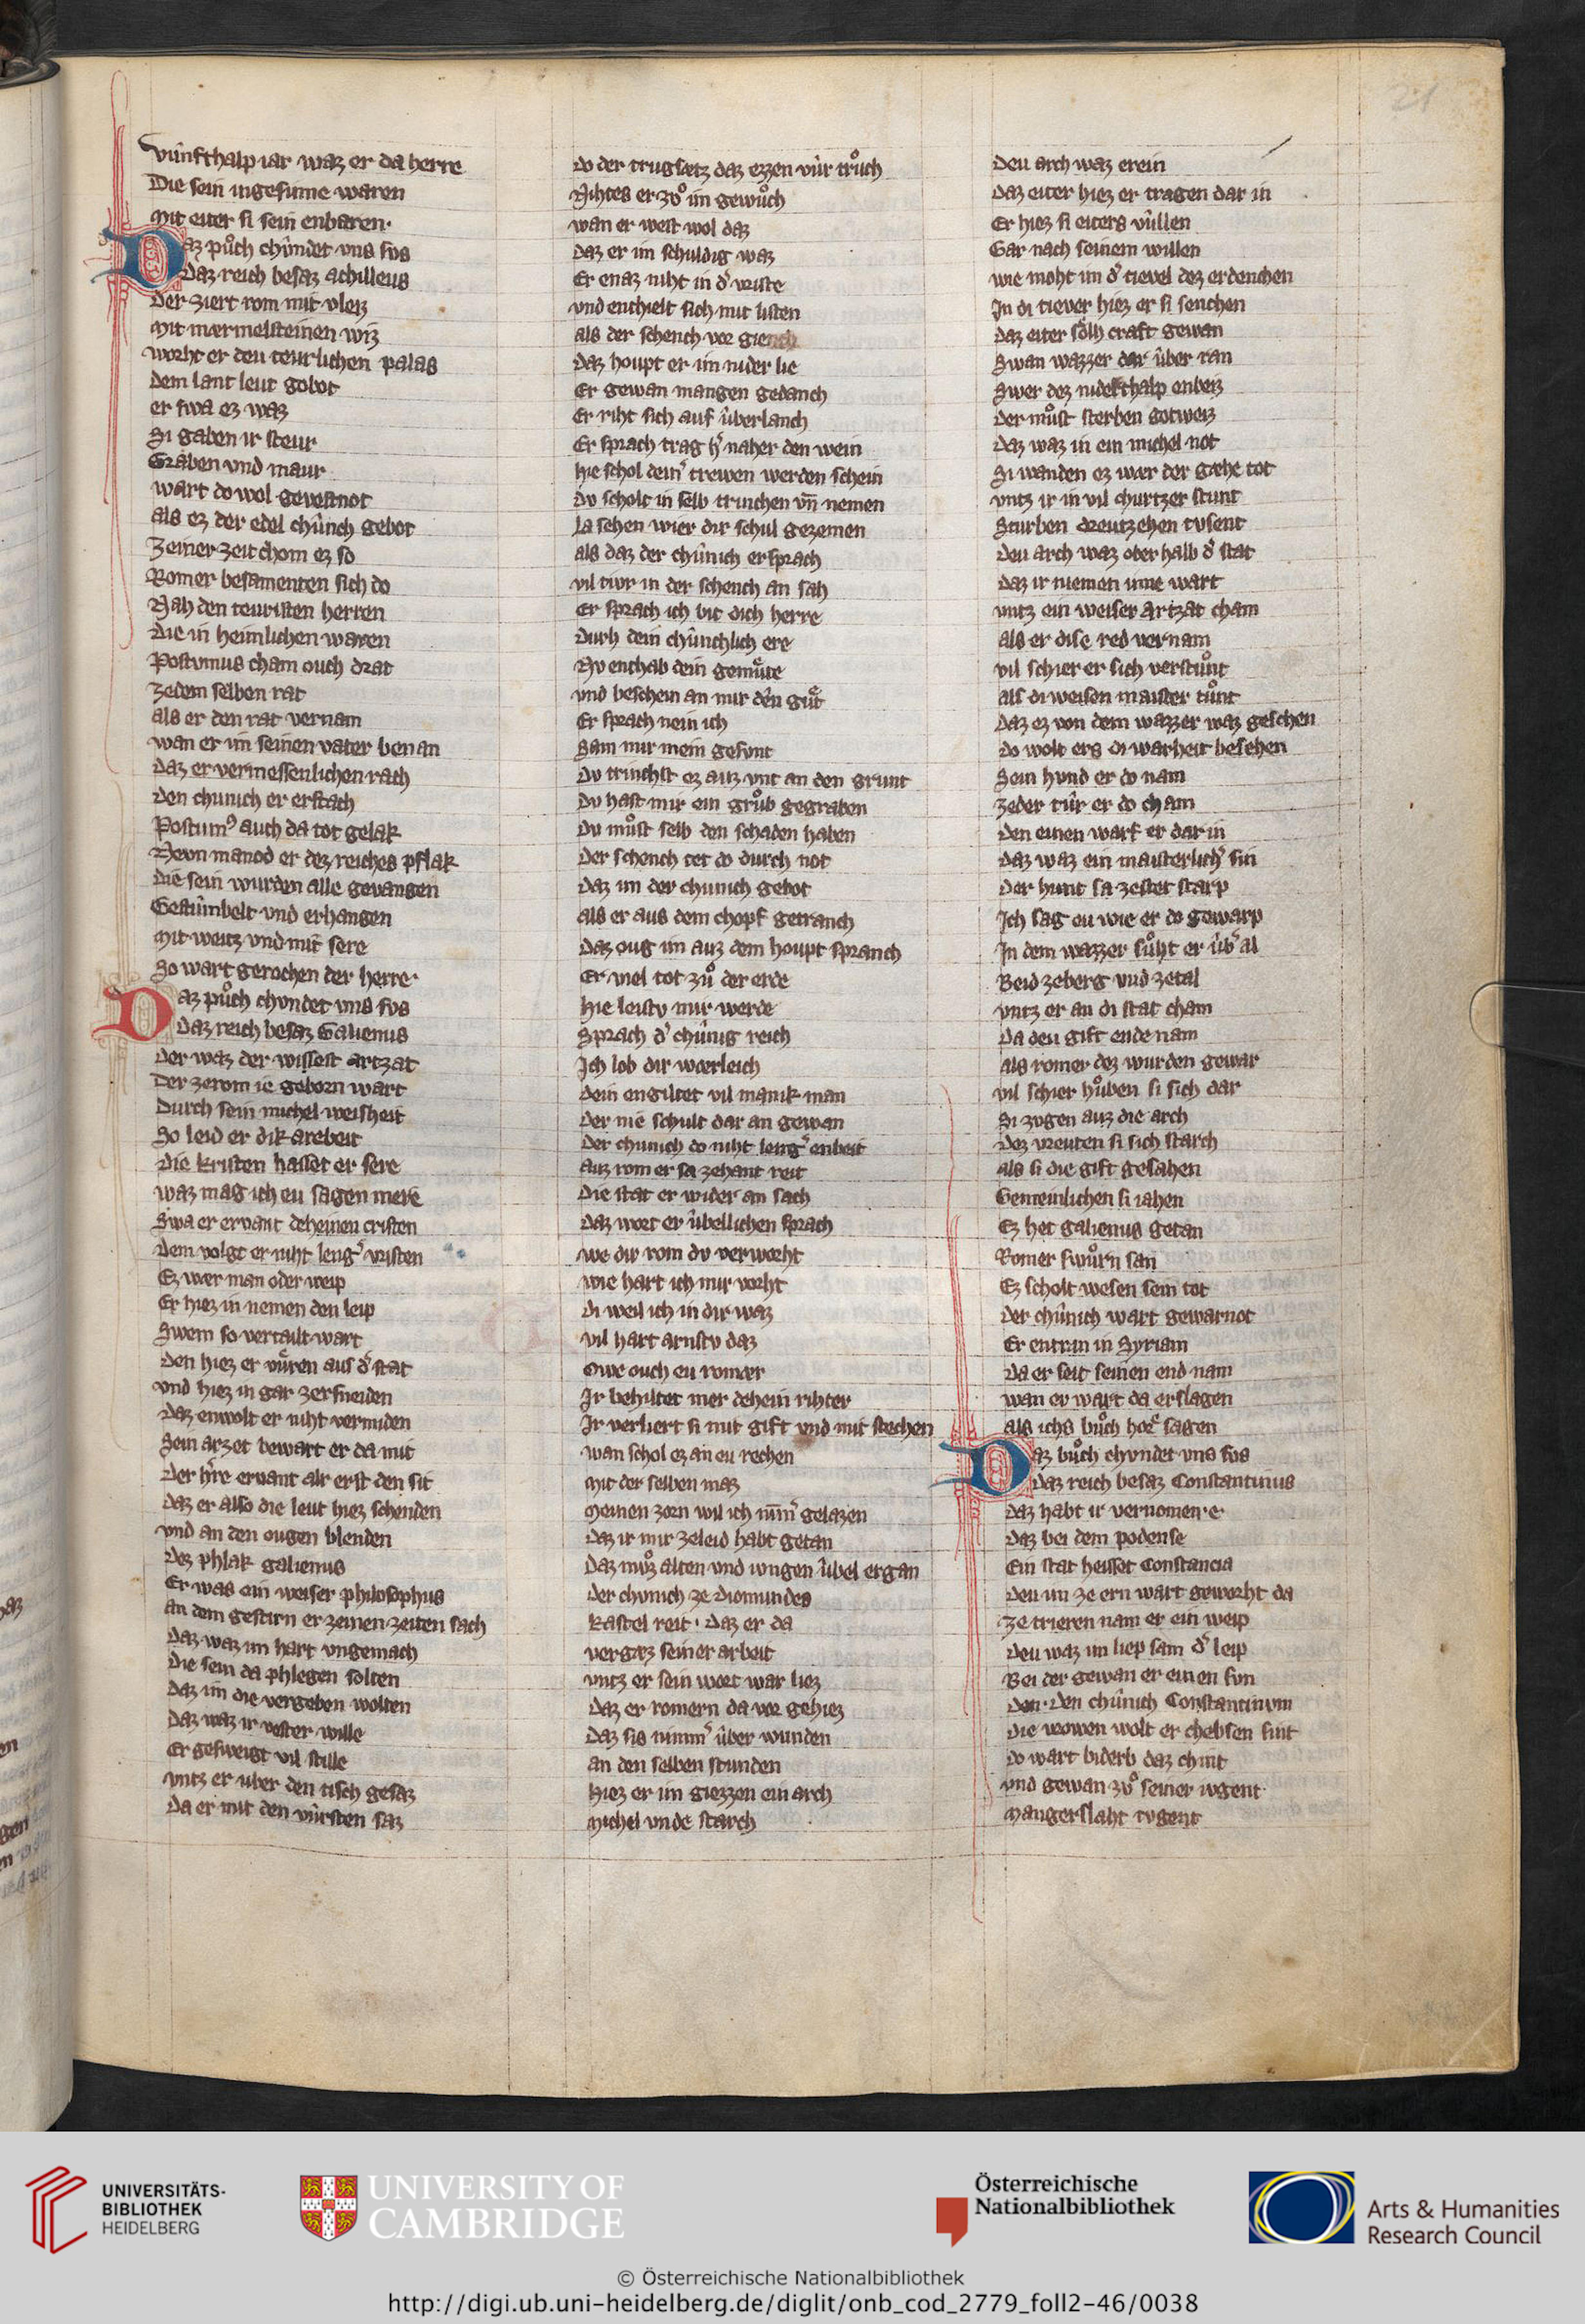 21
Vûnfthalp iar waz er da herre
Die sein ingesinne waren
Mit eiter si sein enbaren.
Daz pu̍ch chûndet vns sus
Daz reich besaz achilleus
Der ziert rom mit vleiz
Mit mærmelsteinen wiz
worht er den teurlichen palas
dem lant leut gebot
er swa ez waz
Si gaben ir steur
Graben vnd maur
wart do wol gevestnot
als ez der edel chûnch gebot
Zeiner zeit chom ez so
Romer besamenten sich do
Nah den teuristen herren
die in heimlichen waren
Postvmus cham ouch drat
zedem selben rat
als er den rat vernam
wan er im seinen vater benan
daz er vermessenlichen rach
den chunich er erstach
Postum9 auch da tot gelak
Nevn manod er dez reiches pflak
die sein wurden alle gevangen
Gestûmbelt vnd erhangen
Mit weitz vnd mit sere
So wart gerochen der herre.
Daz půch chvndet vns sus
Daz reich besaz Galienus
der waz der wissest artzat
Der zerom ie geborn wart
Durch sein michel weisheit
So leid er dik arebeit
die kristen hasset er sere
waz mag ich eu sagen mere
Swa er ervant deheinen cristen
dem volgt er niht leng' vristen
Ez wer man oder weip
Er hiez in nemen den leip
Swem so vertailt wart
den hiez er vûren aus d' stat
vnd hiez in gar zersneiden
daz enwolt er niht vermiden
Sein arzet bewart er da mit
der h're ervant alr erst den sit
daz er also die leut hiez schenden
vnd an den ougen blenden
dez phlak galienus
Er was ein weiser philosophus
an dem gestirn er zeinen zeiten sach
daz waz im hart vngemach
die sein da phlegen solten
daz im die vergeben wolten
daz waz ir vester wille
Er gesweigt vil stille
vntz er uber den tisch gesaz
da er mit den vûrsten saz
do der trugsætz daz ezzen vûr trůch
Nihtes er zů im gewůch
wan er west wol daz
daz er im schuldig waz
Er enaz niht in d' vriste
vnd enthielt sich mit listen
als der schench vor giench
daz houpt er im nider lie
Er gewan mangen gedanch
Er riht sich auf ûberlanch
Er sprach trag h' naher den wein
hie schol dein' trewen werden schein
dv scholt in selb trinchen vn̄ nemen
la sehen wier dir schul gezemen
als daz der chûnich ersprach
vil tivr in der schench an sah
Er sprach ich bit dich herre
durh dein chûnchlich ere
Nv enthab dein gemůte
vnd beschein an mir den gůt
Er sprach nein ich
Sam mir mein gesvnt
dv trinchst ez auz vnt an den grunt
dv hast mir ein grůb gegraben
du můst selb den schaden haben
der schench tet do durch not
daz im der chunich gebot
als er aus dem chopf getranch
daz oug im auz dem houpt spranch
Er viel tot zů der erde
hie leistv mir werde
Sprach d' chûnig reich
Ich lob dir wærleich
dein engiltet vil manik man
der nie schult dar an gewan
der chunich do niht leng' enbeit
auz rom er sa zehant reit
die stat er wider an sach
daz wort er ûbellichen sprach
we dir rom dv verworht
wie hart ich mir vorht
di weil ich in dir waz
vil hart arnstv daz
Owe ouch eu romær
Ir behiltet mer dehein rihter
Ir verliert si mit gift vnd mit stechen
wan schol ez an eu rechen
Mit der selben maz
Meinen zorn wil ich nim̄' gelazen
daz ir mir zeleid habt getan
daz můz alten vnd iungen ûbel ergan
der chvnich ze diomundes
kastel reit. daz er da
vergæz seiner arbeit
vntz er sein wort war liez
daz er romern da vor gehiez
daz sis nimm' ûber wunden
an den selben stunden
hiez er im giezzen ein arch
Michel vnde starch
deu arch waz erein
daz eiter hiez er tragen dar in
Er hiez si eiters vûllen
Gar nach seinem willen
wie moht im d' tievel dez erdenchen
In di tiever hiez er si senchen
daz eiter sôlh craft gewan
Swan wazzer dar ûber ran
Swer dez niderthalp enbeiz
der můst sterben gotweiz
daz waz in ein michel not
Si wanden ez wær der gæhe tot
vntz ir in vil churtzer stunt
Sturben dreutzehen tvsent
deu arch waz oberhalb d' stat
daz ir niemen inne wart
vntz ein weiser artzat cham
als er dise red vernam
vil schier er sich verstůnt
als di weisen maister tůnt
daz ez von dem wazzer waz geschen
do wolt ers di warheit besehen
Sein hvnd er do nam
zeder tûr er do cham
den einen warf er dar in
daz waz ein maisterlich' sin
der hunt sa zester starp
Ich sag eu wie er do gewarp
In dem wazzer sůht er ûb'al
Beid zeberg vnd zetal
vntz er an di stat cham
da deu gift ende nam
als romer dez wurden gewar
vil schier hůben si sich dar
Si zvgen auz die arch
dez vreuten si sich starch
als si die gift gesahen
Gemeinlichen si iahen
Ez het galienus getan
Romer swůrn san
Ez scholt wesen sein tot
der chûnich wart gewarnot
Er entran in Syriam
da er seit seinen end nam
wan er wart da erslagen
als ichs bůch hore sagen
Daz bůch chvndet vns sus
Daz reich besaz Constantinus
daz habt ir vernomen e
daz bei dem podense
Ein stat heisset Constancia
deu im ze ern wart geworht da
ze trieren nam er ein weip
deu waz im liep sam d' leip
Bei der gewan er einen svn
den. den chûnich Constantinvm
die vrowen wolt er chebsen sint
do wart biderb daz chint
vnd gewan zů seiner ivgent
Mangerslaht tvgent
UNIVERSITÄTS-
BIBLIOTHEK
HEIDELBERG
UNIVERSITY OF
CAMBRIDGE
Österreichische
Nationalbibliothek
Arts & Humanities
Research Council
© Österreichische Nationalbibliothek
http://digi.ub.uni-heidelberg.de/diglit/onb_cod_2779_foll2-46/0038